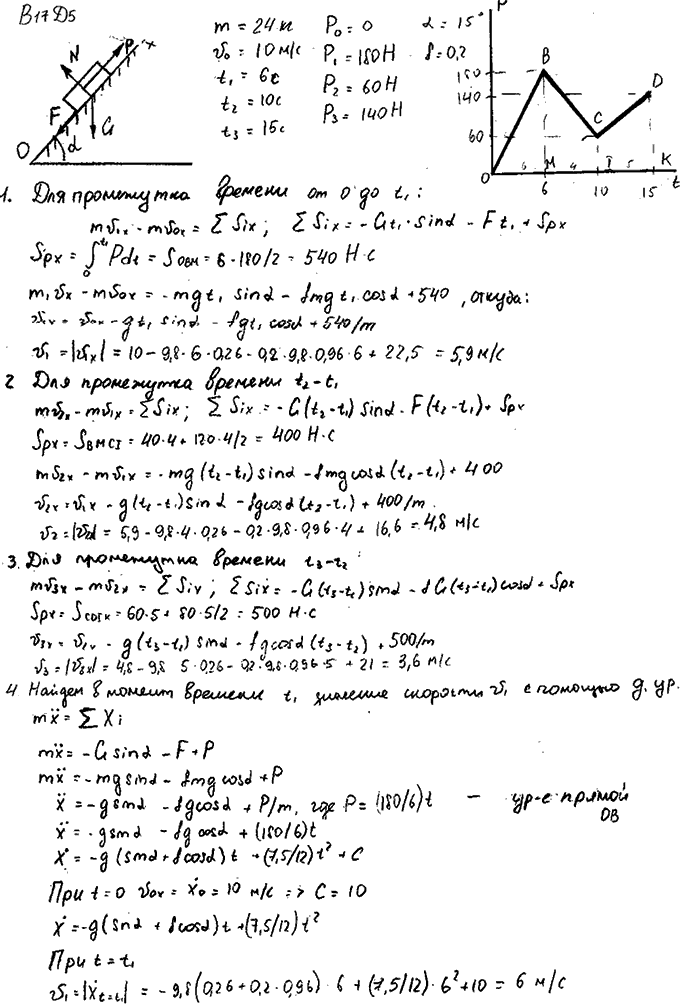 В17 Д5
m = 24 кг P₀ = 0 α = 15°
v₀ = 10 м/с P₁ = 180 Н f = 0,2
t₁ = 6c P₂ = 60 Н
t₂ = 10c P₃ = 140 Н
t₃ = 15c
N P x
F G
O α
P
180 B
140 D
60 C
O 6 M 4 I 5 K t
6 10 15
1. Для промежутка времени от 0 до t₁:
mv₁ₓ - mv₀ₓ = ΣSix; ΣSix = -Gt₁·sinα - Ft₁ + Spx
Spx = ∫₀^t₁ Pdt = SОВМ = 6·180/2 = 540 Н·с
m₁vx - mv₀x = -mgt₁ sinα - fmgt₁ cosα + 540, откуда:
v₁x = v₀x - gt₁ sinα - fgt₁ cosα + 540/m
v₁ = |vx| = 10 - 9,8·6·0,26 - 0,2·9,8·0,96·6 + 22,5 = 5,9 м/с
2 Для промежутка времени t₂-t₁
mv₂x - mv₁x = ΣSix; ΣSix = -G(t₂-t₁) sinα - F(t₂-t₁) + Spx
Spx = SВМСI = 40·4 + 120·4/2 = 400 Н·с
mv₂x - mv₁x = -mg(t₂-t₁) sinα - fmgcosα(t₂-t₁) + 400
v₂x = v₁x - g(t₂-t₁) sinα - fgcosα(t₂-t₁) + 400/m
v₂ = |v₂x| = 5,9 - 9,8·4·0,26 - 0,2·9,8·0,96·4 + 16,6 = 4,8 м/с
3. Для промежутка времени t₃-t₂:
mv₃x - mv₂x = ΣSix; ΣSix = -G(t₃-t₂) sinα - fG(t₃-t₂) cosα + Spx
Spx = SCDIK = 60·5 + 80·5/2 = 500 Н·с
v₃x = v₂x - g(t₃-t₂) sinα - fgcosα(t₃-t₂) + 500/m
v₃ = |v₃x| = 4,8 - 9,8 5·0,26 - 0,2·9,8·0,96·5 + 21 = 3,6 м/с
4. Найдем в момент времени t₁ значение скорости v₁ с помощью д. ур.
mẍ = ΣXi
mẍ = -G sinα - F + P
mẍ = -mg sinα - fmg cosα + P
ẍ = -g sinα - fg cosα + P/m, где P = (180/6)t — ур-е прямой ОВ
ẍ = -g sinα - fg cosα + (180/6)t
ẋ = -g (sinα + f cosα) t + (7,5/12)t² + C
При t = 0 v₀x = ẋ₀ = 10 м/с => C = 10
ẋ = -g(sinα + f cosα)t + (7,5/12)t²
При t = t₁
v₁ = |ẋt=t₁| = -9,8(0,26 + 0,2·0,96)·6 + (7,5/12)·6² + 10 = 6 м/с